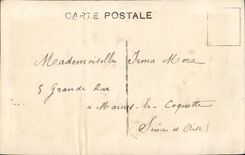 CARTE POSTALE
Mademoiselle Irma Mora
5 Grande Rue
a Marnes-la-Coquette
(Seine et Oise)